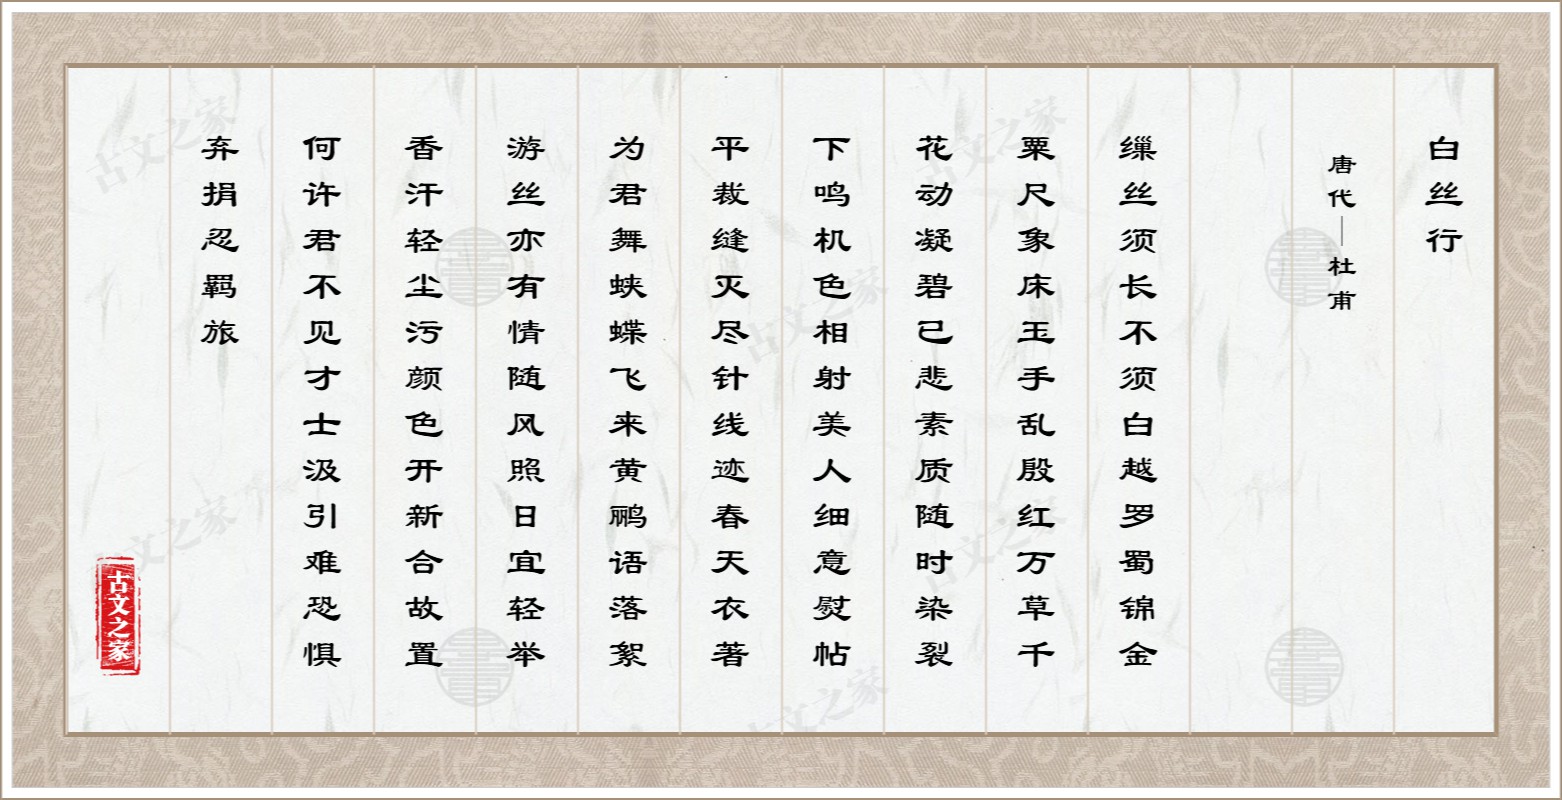 白丝行
唐代—杜甫
缫丝须长不须白越罗蜀锦金
粟尺象床玉手乱殷红万草千
花动凝碧已悲素质随时染裂
下鸣机色相射美人细意熨帖
平裁缝灭尽针线迹春天衣著
为君舞蛱蝶飞来黄鹂语落絮
游丝亦有情随风照日宜轻举
香汗轻尘污颜色开新合故置
何许君不见才士汲引难恐惧
弃捐忍羁旅
古文之家
古文之家
古文之家
古文之家
古文之家
古文之家
古文之家